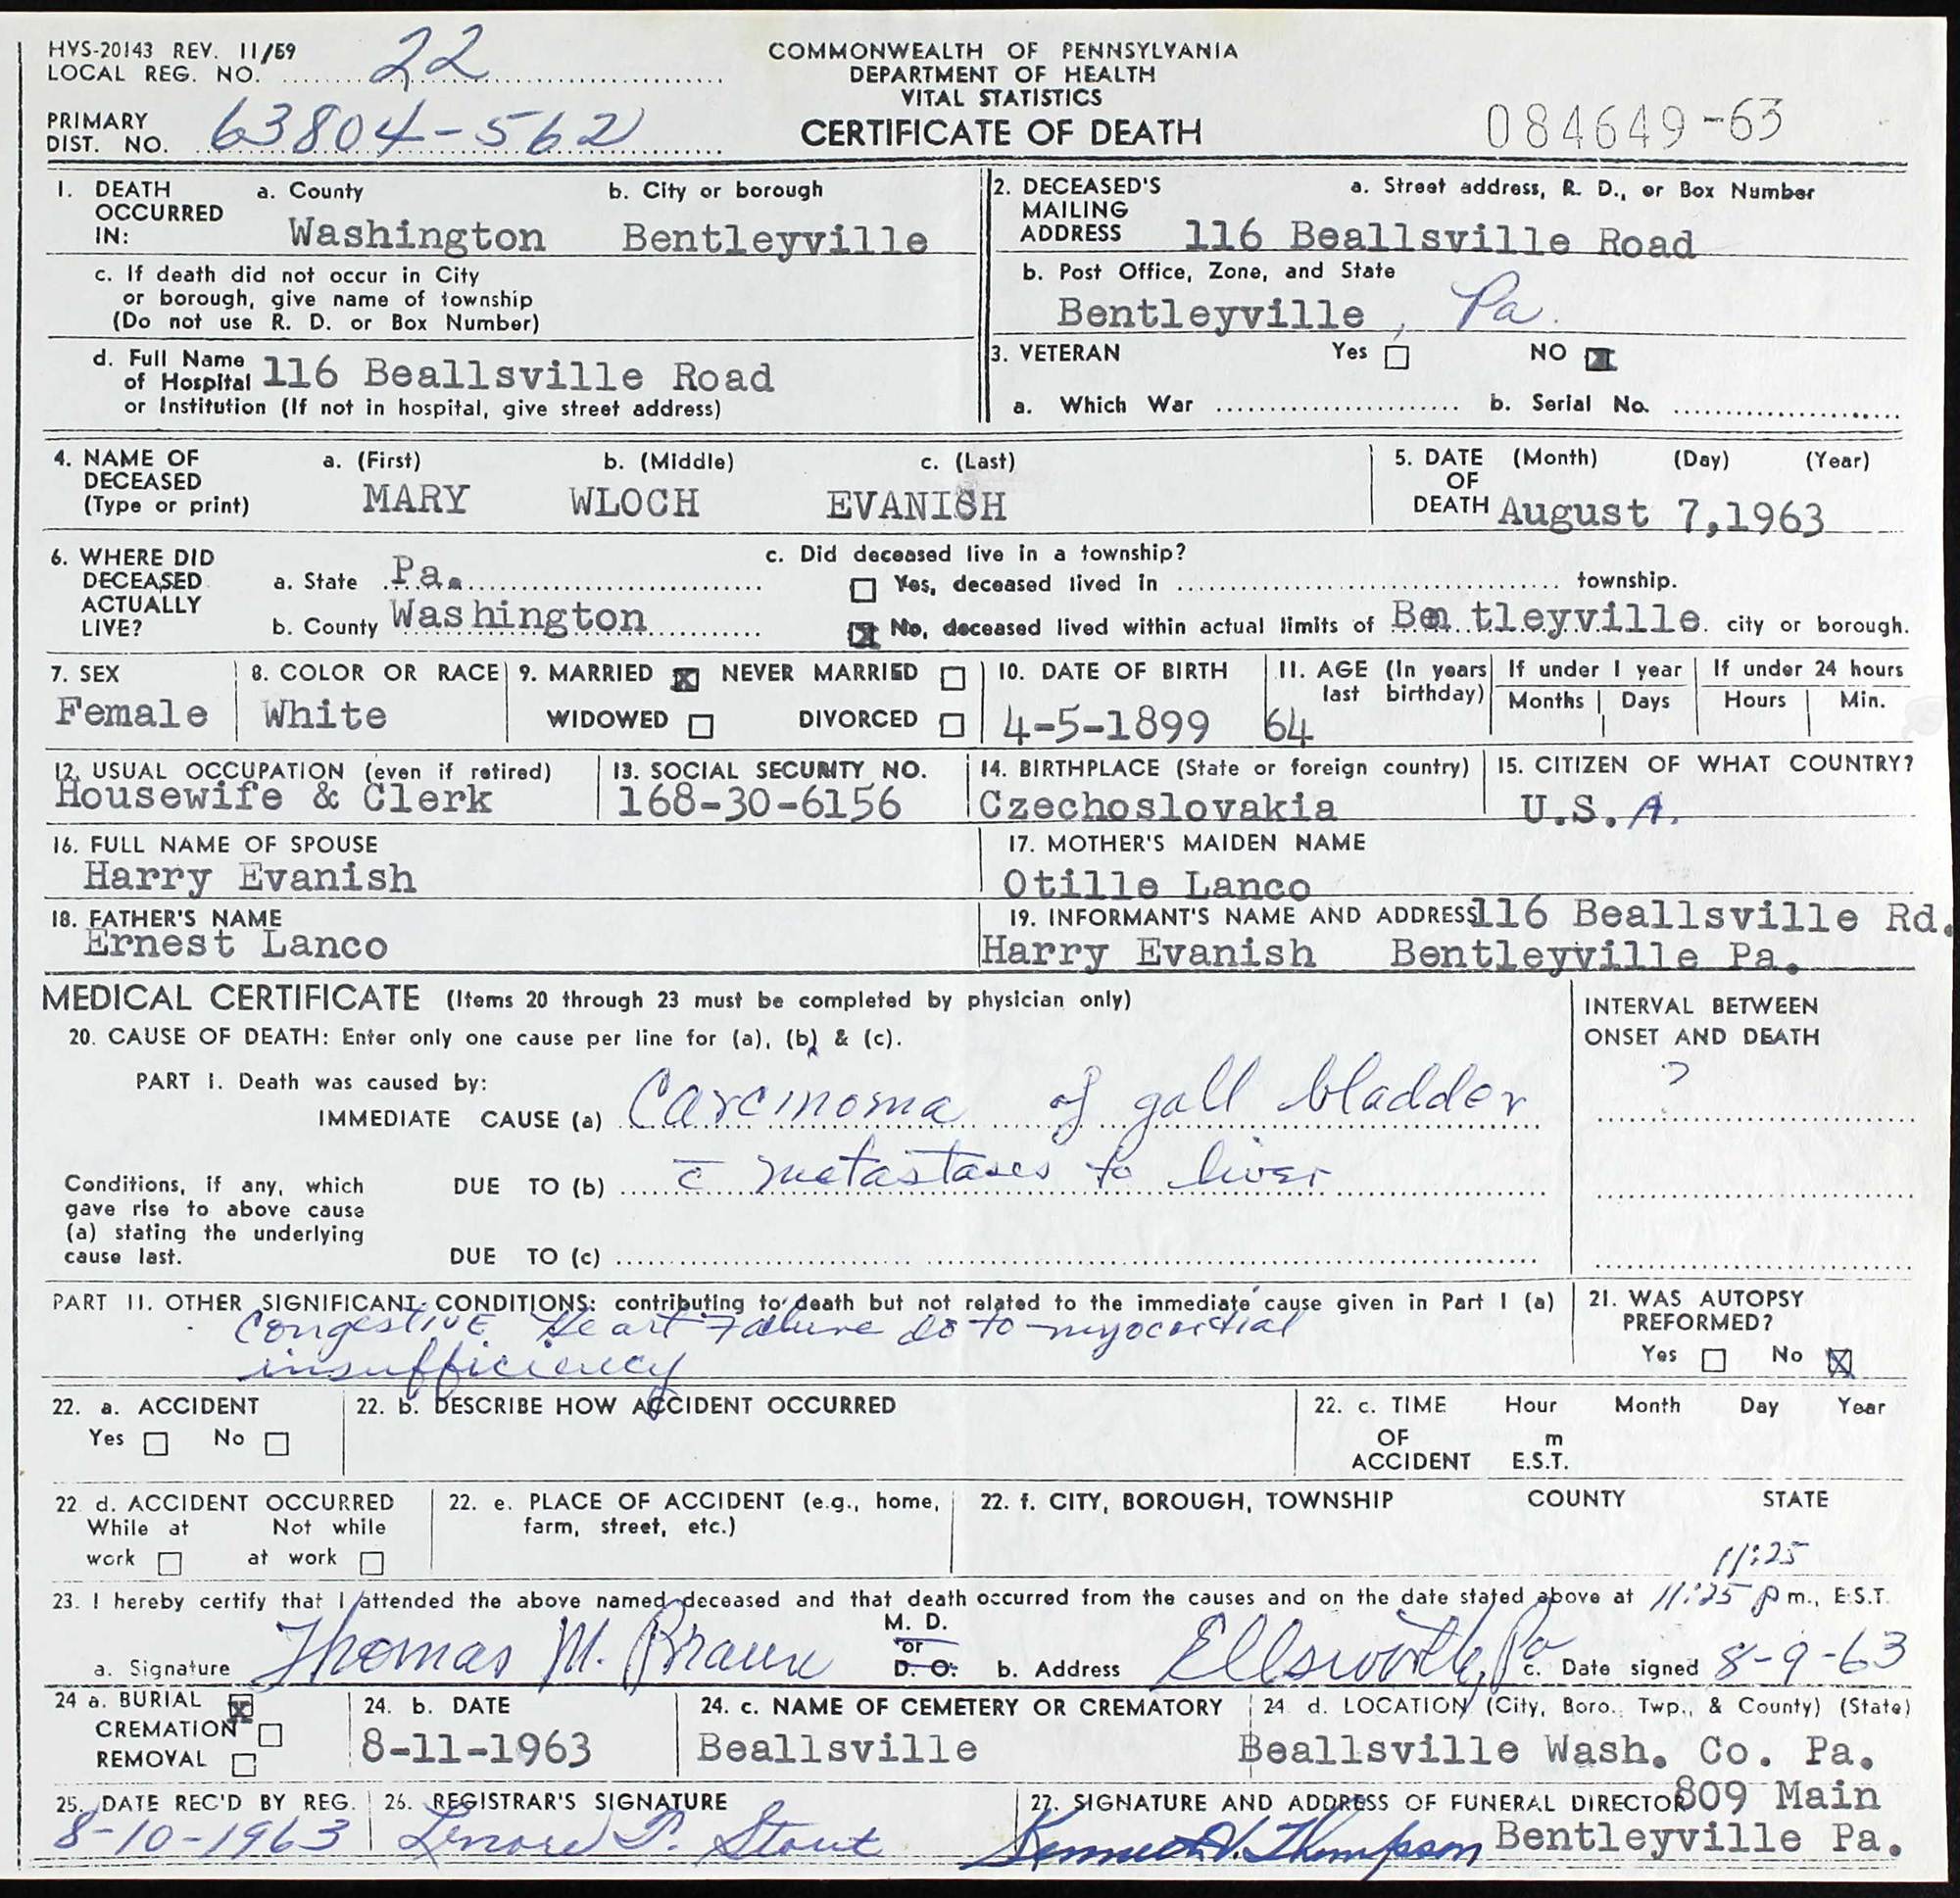 HVS-20143 REV. 11/59
LOCAL REG. NO. 22
COMMONWEALTH OF PENNSYLVANIA
DEPARTMENT OF HEALTH
VITAL STATISTICS
CERTIFICATE OF DEATH
PRIMARY
DIST. NO. 63804-562
084649-63
1. DEATH OCCURRED IN:
a. County
Washington
b. City or borough
Bentleyville
c. If death did not occur in City
or borough, give name of township
(Do not use R. D. or Box Number)
d. Full Name
of Hospital 116 Beallsville Road
or Institution (If not in hospital, give street address)
2. DECEASED'S MAILING ADDRESS
a. Street address, R. D., or Box Number
116 Beallsville Road
b. Post Office, Zone, and State
Bentleyville, Pa.
3. VETERAN Yes NO X
a. Which War b. Serial No.
4. NAME OF DECEASED (Type or print)
a. (First) b. (Middle) c. (Last)
MARY WLOCH EVANISH
5. DATE OF DEATH (Month) (Day) (Year)
August 7,1963
6. WHERE DID DECEASED ACTUALLY LIVE?
a. State Pa.
b. County Washington
c. Did deceased live in a township?
Yes, deceased lived in township.
X No, deceased lived within actual limits of Bentleyville city or borough.
7. SEX
Female
8. COLOR OR RACE
White
9. MARRIED X NEVER MARRIED
WIDOWED DIVORCED
10. DATE OF BIRTH
4-5-1899
11. AGE (In years last birthday)
64
If under 1 year
Months Days
If under 24 hours
Hours Min.
12. USUAL OCCUPATION (even if retired)
Housewife & Clerk
13. SOCIAL SECURITY NO.
168-30-6156
14. BIRTHPLACE (State or foreign country)
Czechoslovakia
15. CITIZEN OF WHAT COUNTRY?
U.S.A.
16. FULL NAME OF SPOUSE
Harry Evanish
17. MOTHER'S MAIDEN NAME
Otille Lanco
18. FATHER'S NAME
Ernest Lanco
19. INFORMANT'S NAME AND ADDRESS 116 Beallsville Rd.
Harry Evanish Bentleyville Pa.
MEDICAL CERTIFICATE (Items 20 through 23 must be completed by physician only)
INTERVAL BETWEEN
ONSET AND DEATH
?
20. CAUSE OF DEATH: Enter only one cause per line for (a), (b) & (c).
PART I. Death was caused by:
IMMEDIATE CAUSE (a) Carcinoma of gall bladder
Conditions, if any, which
gave rise to above cause
(a) stating the underlying
cause last.
DUE TO (b) c̄ metastases to liver
DUE TO (c)
PART II. OTHER SIGNIFICANT CONDITIONS: contributing to death but not related to the immediate cause given in Part I (a)
Congestive Heart Failure do to myocardial
insufficiency
21. WAS AUTOPSY
PREFORMED?
Yes No X
22. a. ACCIDENT
Yes No
22. b. DESCRIBE HOW ACCIDENT OCCURRED
22. c. TIME OF ACCIDENT Hour Month Day Year
m
E.S.T.
22 d. ACCIDENT OCCURRED
While at work Not while at work
22. e. PLACE OF ACCIDENT (e.g., home,
farm, street, etc.)
22. f. CITY, BOROUGH, TOWNSHIP COUNTY STATE
11:25
23. I hereby certify that I attended the above named deceased and that death occurred from the causes and on the date stated above at 11:25 p m., E.S.T.
a. Signature Thomas M. Braun
M. D.
or
D. O.
b. Address Ellsworth, Pa
c. Date signed 8-9-63
24 a. BURIAL X
CREMATION
REMOVAL
24. b. DATE
8-11-1963
24. c. NAME OF CEMETERY OR CREMATORY
Beallsville
24 d. LOCATION (City, Boro., Twp., & County) (State)
Beallsville Wash. Co. Pa.
25. DATE REC'D BY REG.
8-10-1963
26. REGISTRAR'S SIGNATURE
Lenore P. Stout
27. SIGNATURE AND ADDRESS OF FUNERAL DIRECTOR 809 Main
Kenneth V. Thompson Bentleyville Pa.